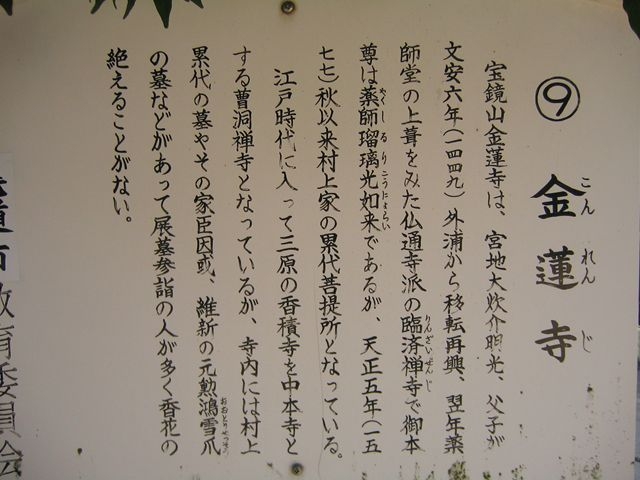 ⑨ 金蓮寺
こんれんじ
宝鏡山金蓮寺は、宮地大炊介明光、父子が
文安六年(一四四九)外浦から移転再興、翌年薬
師堂の上葺をみた仏通寺派の臨済禅寺で御本
りんざいぜんじ
尊は薬師瑠璃光如来であるが、天正五年(一五
やくしるりこうにょらい
七七)秋以来村上家の累代菩提所となっている。
江戸時代に入って三原の香積寺を中本寺と
する曹洞禅寺となっているが、寺内には村上
累代の墓やその家臣因或、維新の元勲鴻雪爪
おおとりせっそう
の墓などがあって展墓参詣の人が多く香花の
絶えることがない。
道市教育委員会